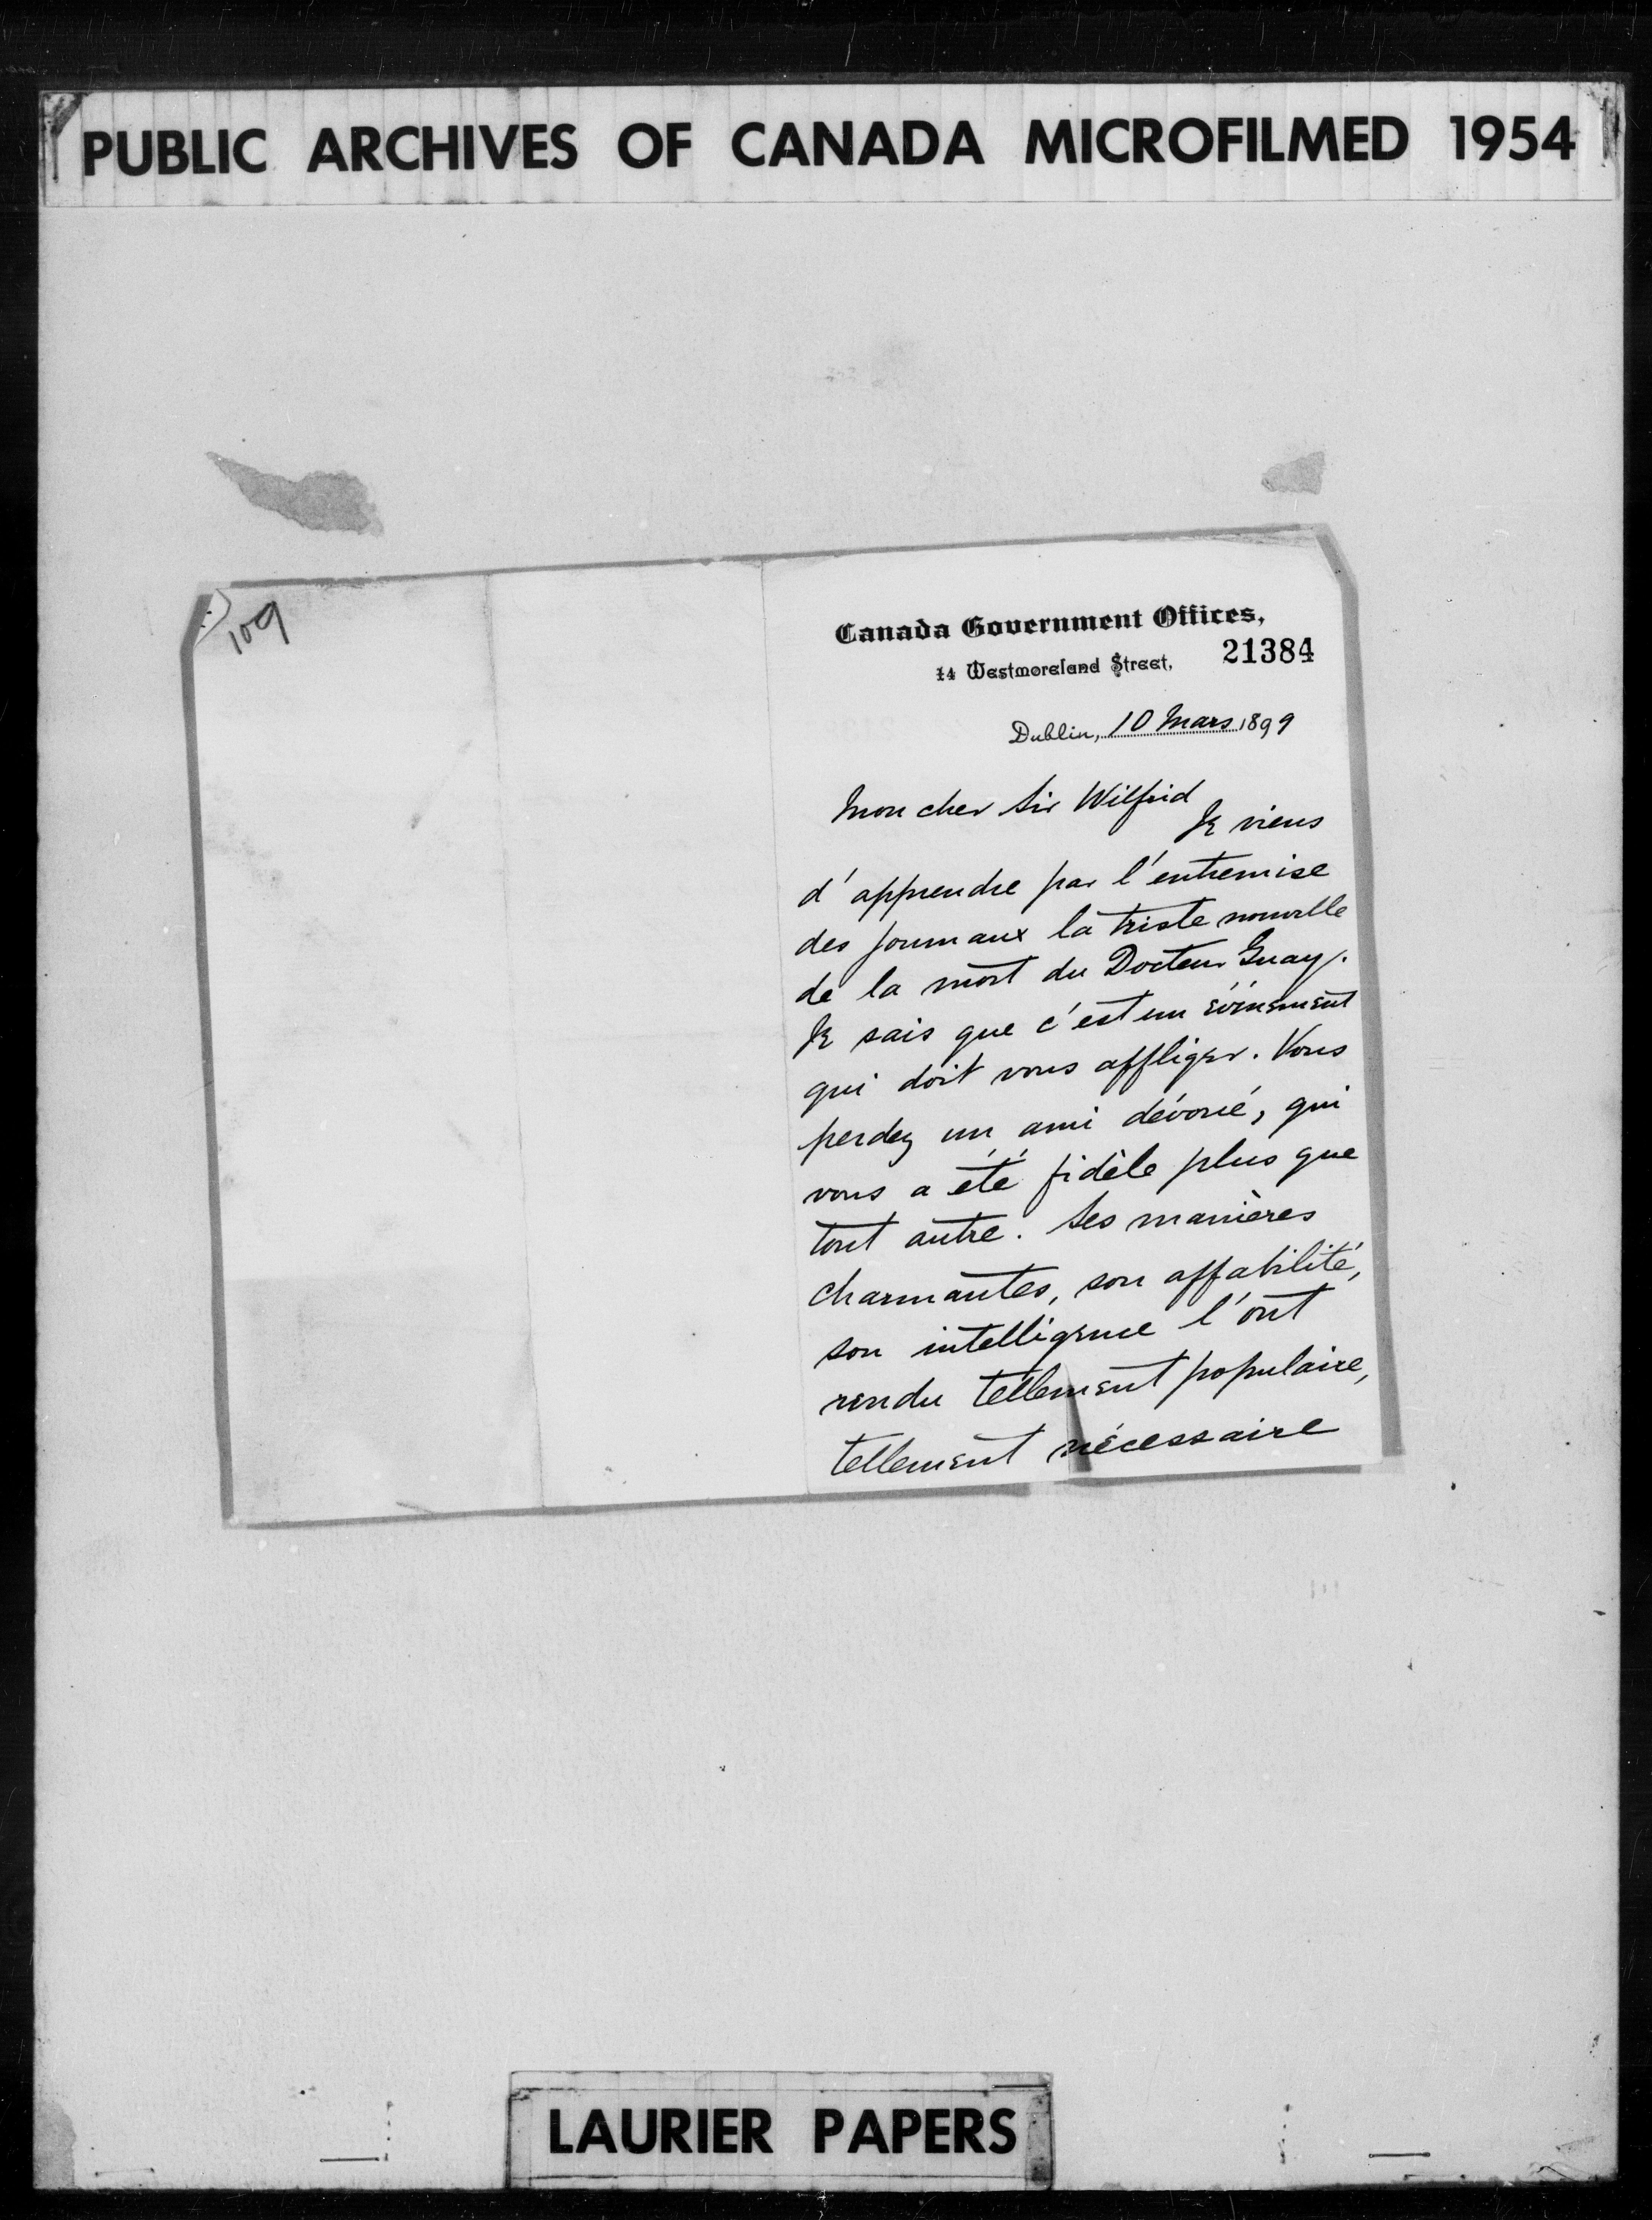 PUBLIC ARCHIVES OF CANADA MICROFILMED 1954
109
Canada Government Offices,
14 Westmoreland Street,
21384
Dublin, 10 Mars 1899
Mon cher Sir Wilfrid
Je viens
d'apprendre par l'entremise
des journaux la triste nouvelle
de la mort du Docteur Guay.
Je sais que c'est un événement
qui doit vous affliger. Vous
perdez un ami dévoué, qui
vous a été fidèle plus que
tout autre. Ses manières
charmantes, son affabilité,
son intelligence l'ont
rendu tellement populaire,
tellement nécessaire
LAURIER PAPERS